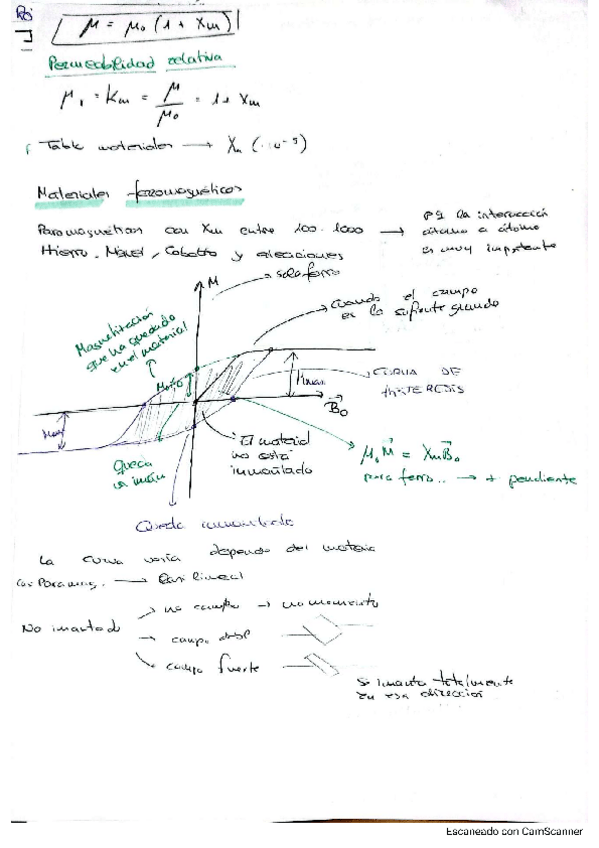 μ = μ₀ (1 + Xm)
Permeabilidad relativa
μr = Km = μ/μ₀ = 1 + Xm
Tabla materiales → Xm (·10⁻⁵)
Materiales ferromagnéticos
Paramagnéticos con Xm entre 100 - 1000 → la interacción
átomo a átomo
es muy importante
Hierro, Níquel, Cobalto y aleaciones
M
solo ferro
Cuando el campo
es lo suficiente grande
Magnetización
que ha quedado
en el material
M≠0
Mmax
CURVA DE
HISTÉRESIS
B₀
Mmax
Queda
un imán
El material
no está
imantado
μ₀M = XmB₀
para ferro.. → + pendiente
Queda imantado
La curva varía depende del material
Con Paramag. → Casi lineal
No imantado
→ no campo → no momento
→ campo débil
→ campo fuerte
Se imanta totalmente
en esa dirección
Escaneado con CamScanner